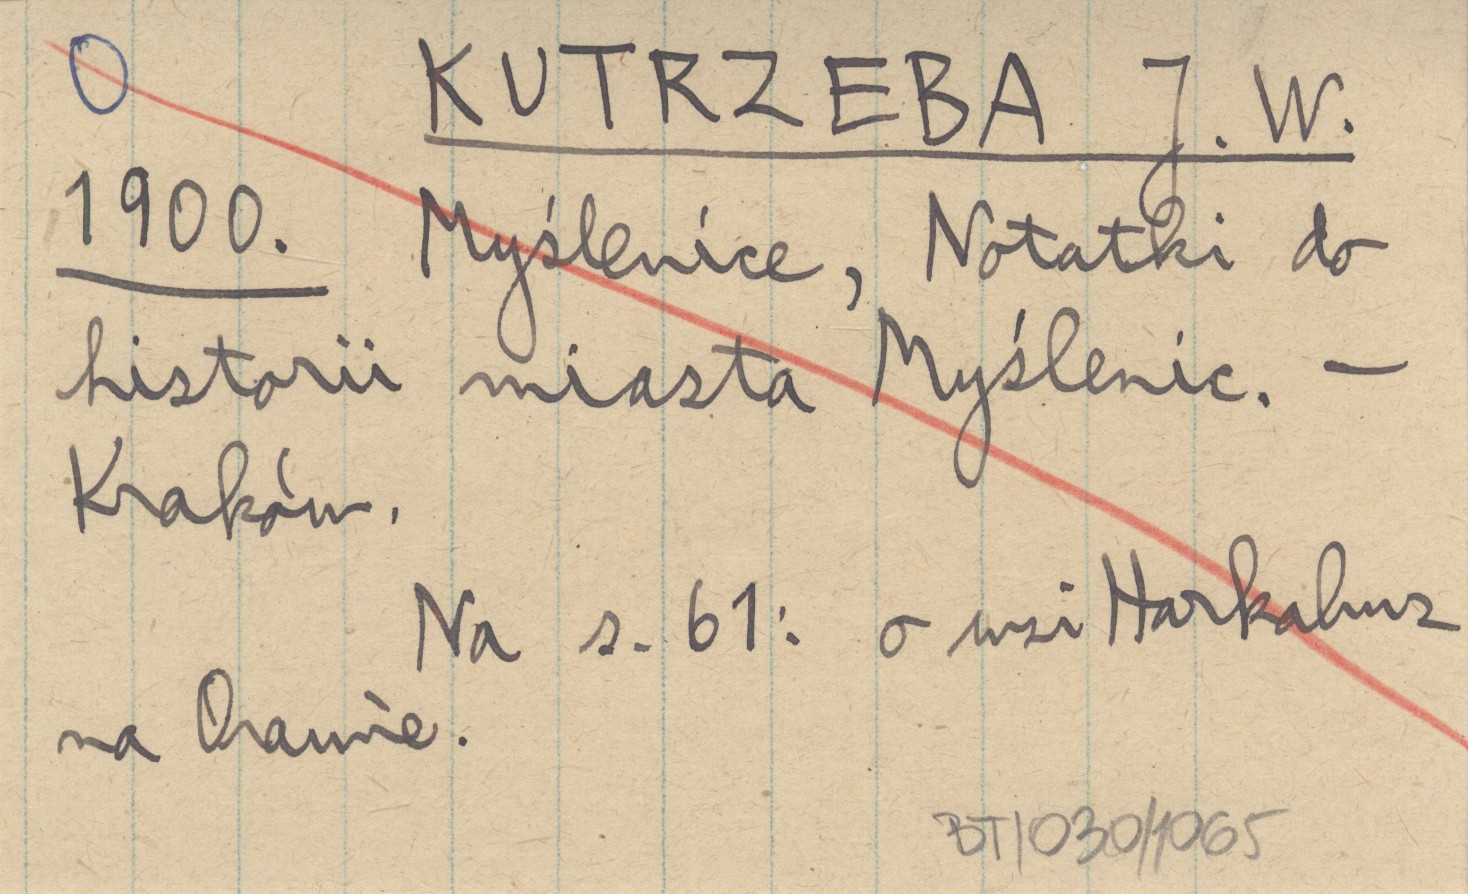 O KUTRZEBA J. W.
1900. Myślenice, Notatki do
historii miasta Myślenic. —
Kraków.
Na s. 61: o wsi Harkabuz
na Orawie.
BT/030/1065